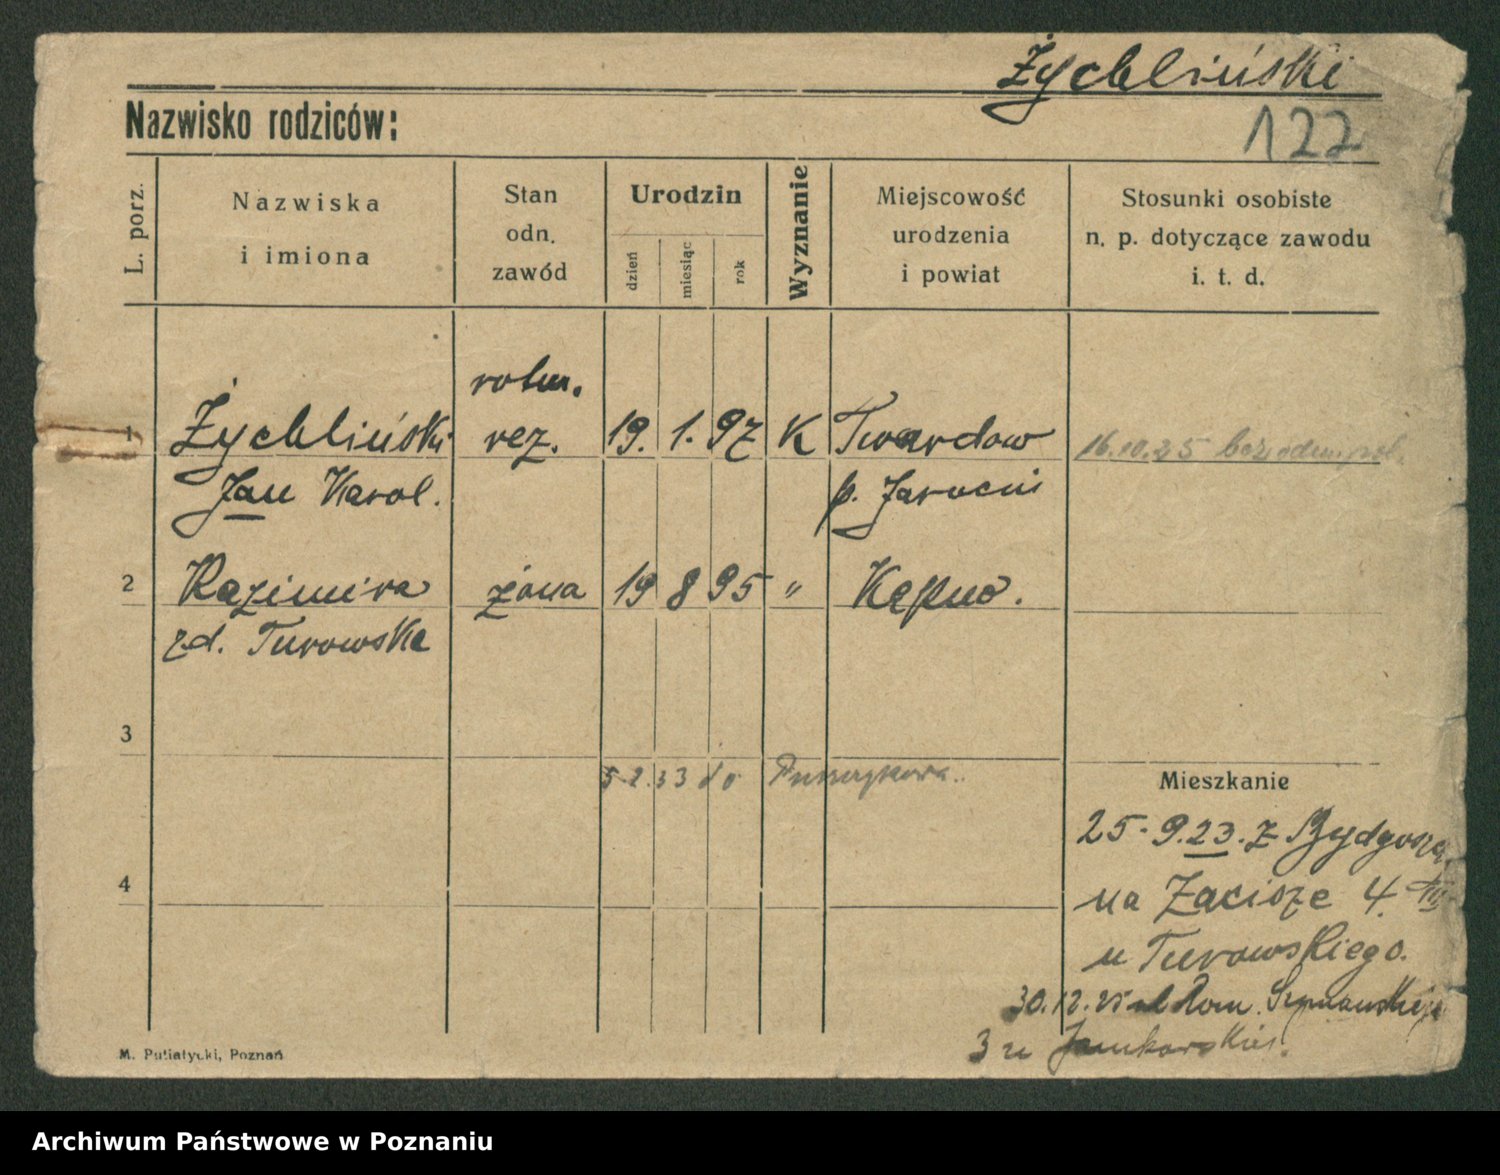 Żychliński
Nazwisko rodziców:
122
L. porz.
Nazwiska
i imiona
Stan
odn.
zawód
Urodzin
dzień
miesiąc
rok
Wyznanie
Miejscowość
urodzenia
i powiat
Stosunki osobiste
n. p. dotyczące zawodu
i. t. d.
rotm.
1 Żychliński rez. 19. 1. 97 K Twardow 16.10.25 bez odm. pol.
Jan Karol. p. Jarocin
2 Kazimira żona 19 8 95 " Kępno.
zd. Turowska
3
5.2.33 do
Mieszkanie
25.9.23. z Bydgoszcz
4
na Zacisze 4. III
u Turowskiego.
30.12.25 Rom. Szymańskiej
3 u
M. Putiatycki, Poznań
Archiwum Państwowe w Poznaniu